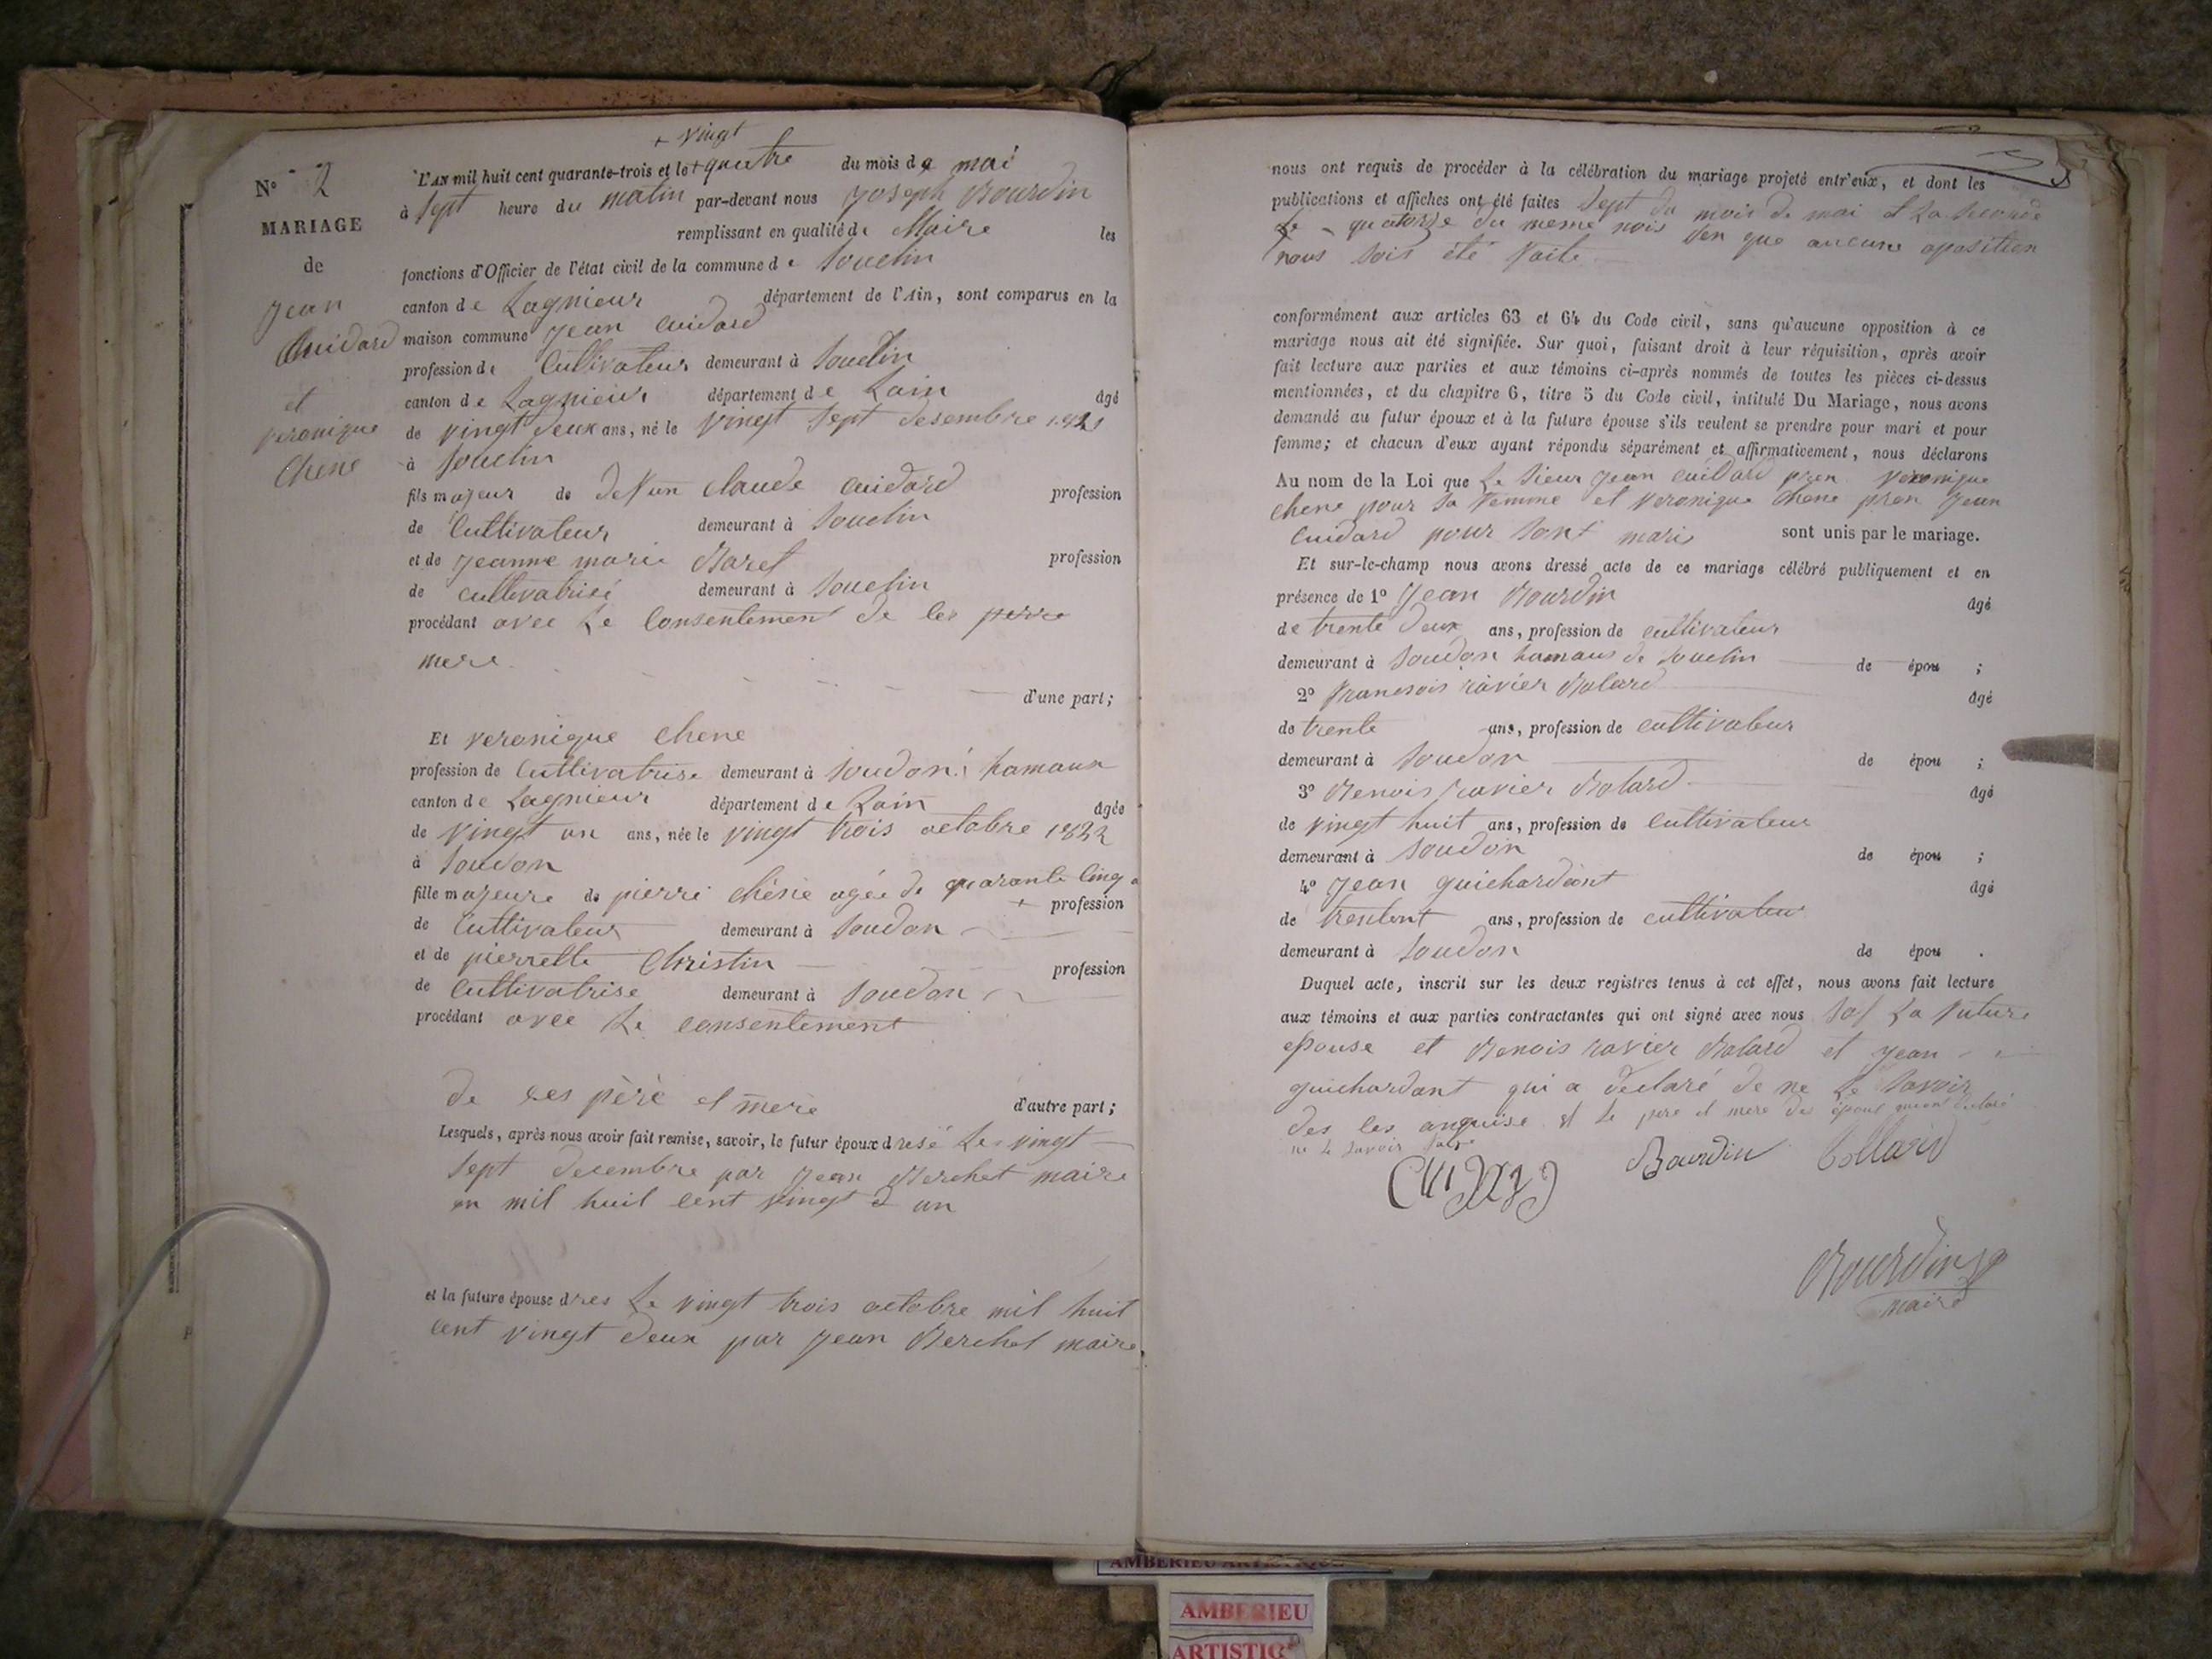 + vingt
N° 2
MARIAGE
de
jean
Cuidard
et
veronique
Chene
L'AN mil huit cent quarante-trois et le + quatre du mois de mai
à sept heure du matin par-devant nous joseph Bourdin
remplissant en qualité de Maire les
fonctions d'Officier de l'état civil de la commune de Souclin
canton de Lagnieur département de l'Ain, sont comparus en la
maison commune jean Cuidard
profession de Cultivateur demeurant à Souclin
canton de Lagnieur département de Lain âgé
de vingt deux ans, né le vingt sept desembre 1821
à Souclin
fils majeur de defun claude cuidard profession
de Cultivateur demeurant à Souclin
et de jeanne marie Baret profession
de cultivatrise demeurant à Souclin
procédant avec le Consentement de les perre
mere
d'une part;
Et veronique chene
profession de Cultivatrise demeurant à soudon hamaux
canton de Lagnieur département de Lain âgée
de vingt un ans, née le vingt trois octobre 1822
à soudon
fille majeure de pierre chéne agée de quarante cinq a
+ profession
de Cultivateur demeurant à soudon
et de pierrette Christin profession
de Cultivatrise demeurant à soudon
procédant avec le consentement
de ses père et mere d'autre part;
Lesquels, après nous avoir fait remise, savoir, le futur époux dresé Le vingt
sept decembre par jean Berchet maire
en mil huit cent vingt un
et la future épouse dres Le vingt trois octobre mil huit
cent vingt deux par jean Berchet maire
nous ont requis de procéder à la célébration du mariage projeté entr'eux, et dont les
publications et affiches ont été faites sept du mois de mai et La seconde
Le quatorze du meme mois sen que aucune oposition
nous sois été faite
conformément aux articles 63 et 64 du Code civil, sans qu'aucune opposition à ce
mariage nous ait été signifiée. Sur quoi, faisant droit à leur réquisition, après avoir
fait lecture aux parties et aux témoins ci-après nommés de toutes les pièces ci-dessus
mentionnées, et du chapitre 6, titre 5 du Code civil, intitulé Du Mariage, nous avons
demandé au futur époux et à la future épouse s'ils veulent se prendre pour mari et pour
femme; et chacun d'eux ayant répondu séparément et affirmativement, nous déclarons
Au nom de la Loi que Le sieur jean cuidard pren veronique
chene pour sa femme et veronique chene pren jean
cuidard pour sont maris sont unis par le mariage.
Et sur-le-champ nous avons dressé acte de ce mariage célébré publiquement et en
présence de 1° jean Bourdin âgé
de trente deux ans, profession de cultivateur
demeurant à soudon hamaus de souclin de épou ;
2° francsois ravier Bolard âgé
de trente ans, profession de cultivateur
demeurant à soudon de épou ;
3° Benois ravier Bolard âgé
de vingt huit ans, profession de cultivateur
demeurant à soudon de épou ;
4° jean guichardant âgé
de trentent ans, profession de cultivateur
demeurant à soudon de épou .
Duquel acte, inscrit sur les deux registres tenus à cet effet, nous avons fait lecture
aux témoins et aux parties contractantes qui ont signé avec nous sof La future
epouse et Benois ravier Bolard et jean
guichardant qui a declaré de ne le savoir
des les anquise et le pere et mere des époux declaré
ne le savoir faire
Bourdin Bollard
Bourdin
maire
AMBERIEU ARTISTIQUE
AMBERIEU
ARTISTIQ